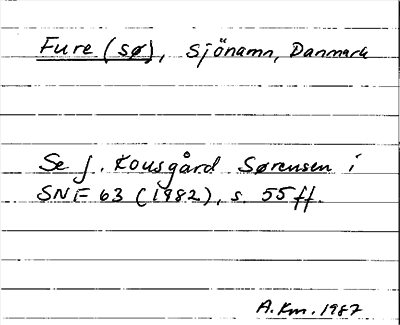 Fure (sø), sjönamn, Danmark
Se J. Kousgård Sørensen i
SNF 63 (1982), s. 55 ff.
A. Km. 1987